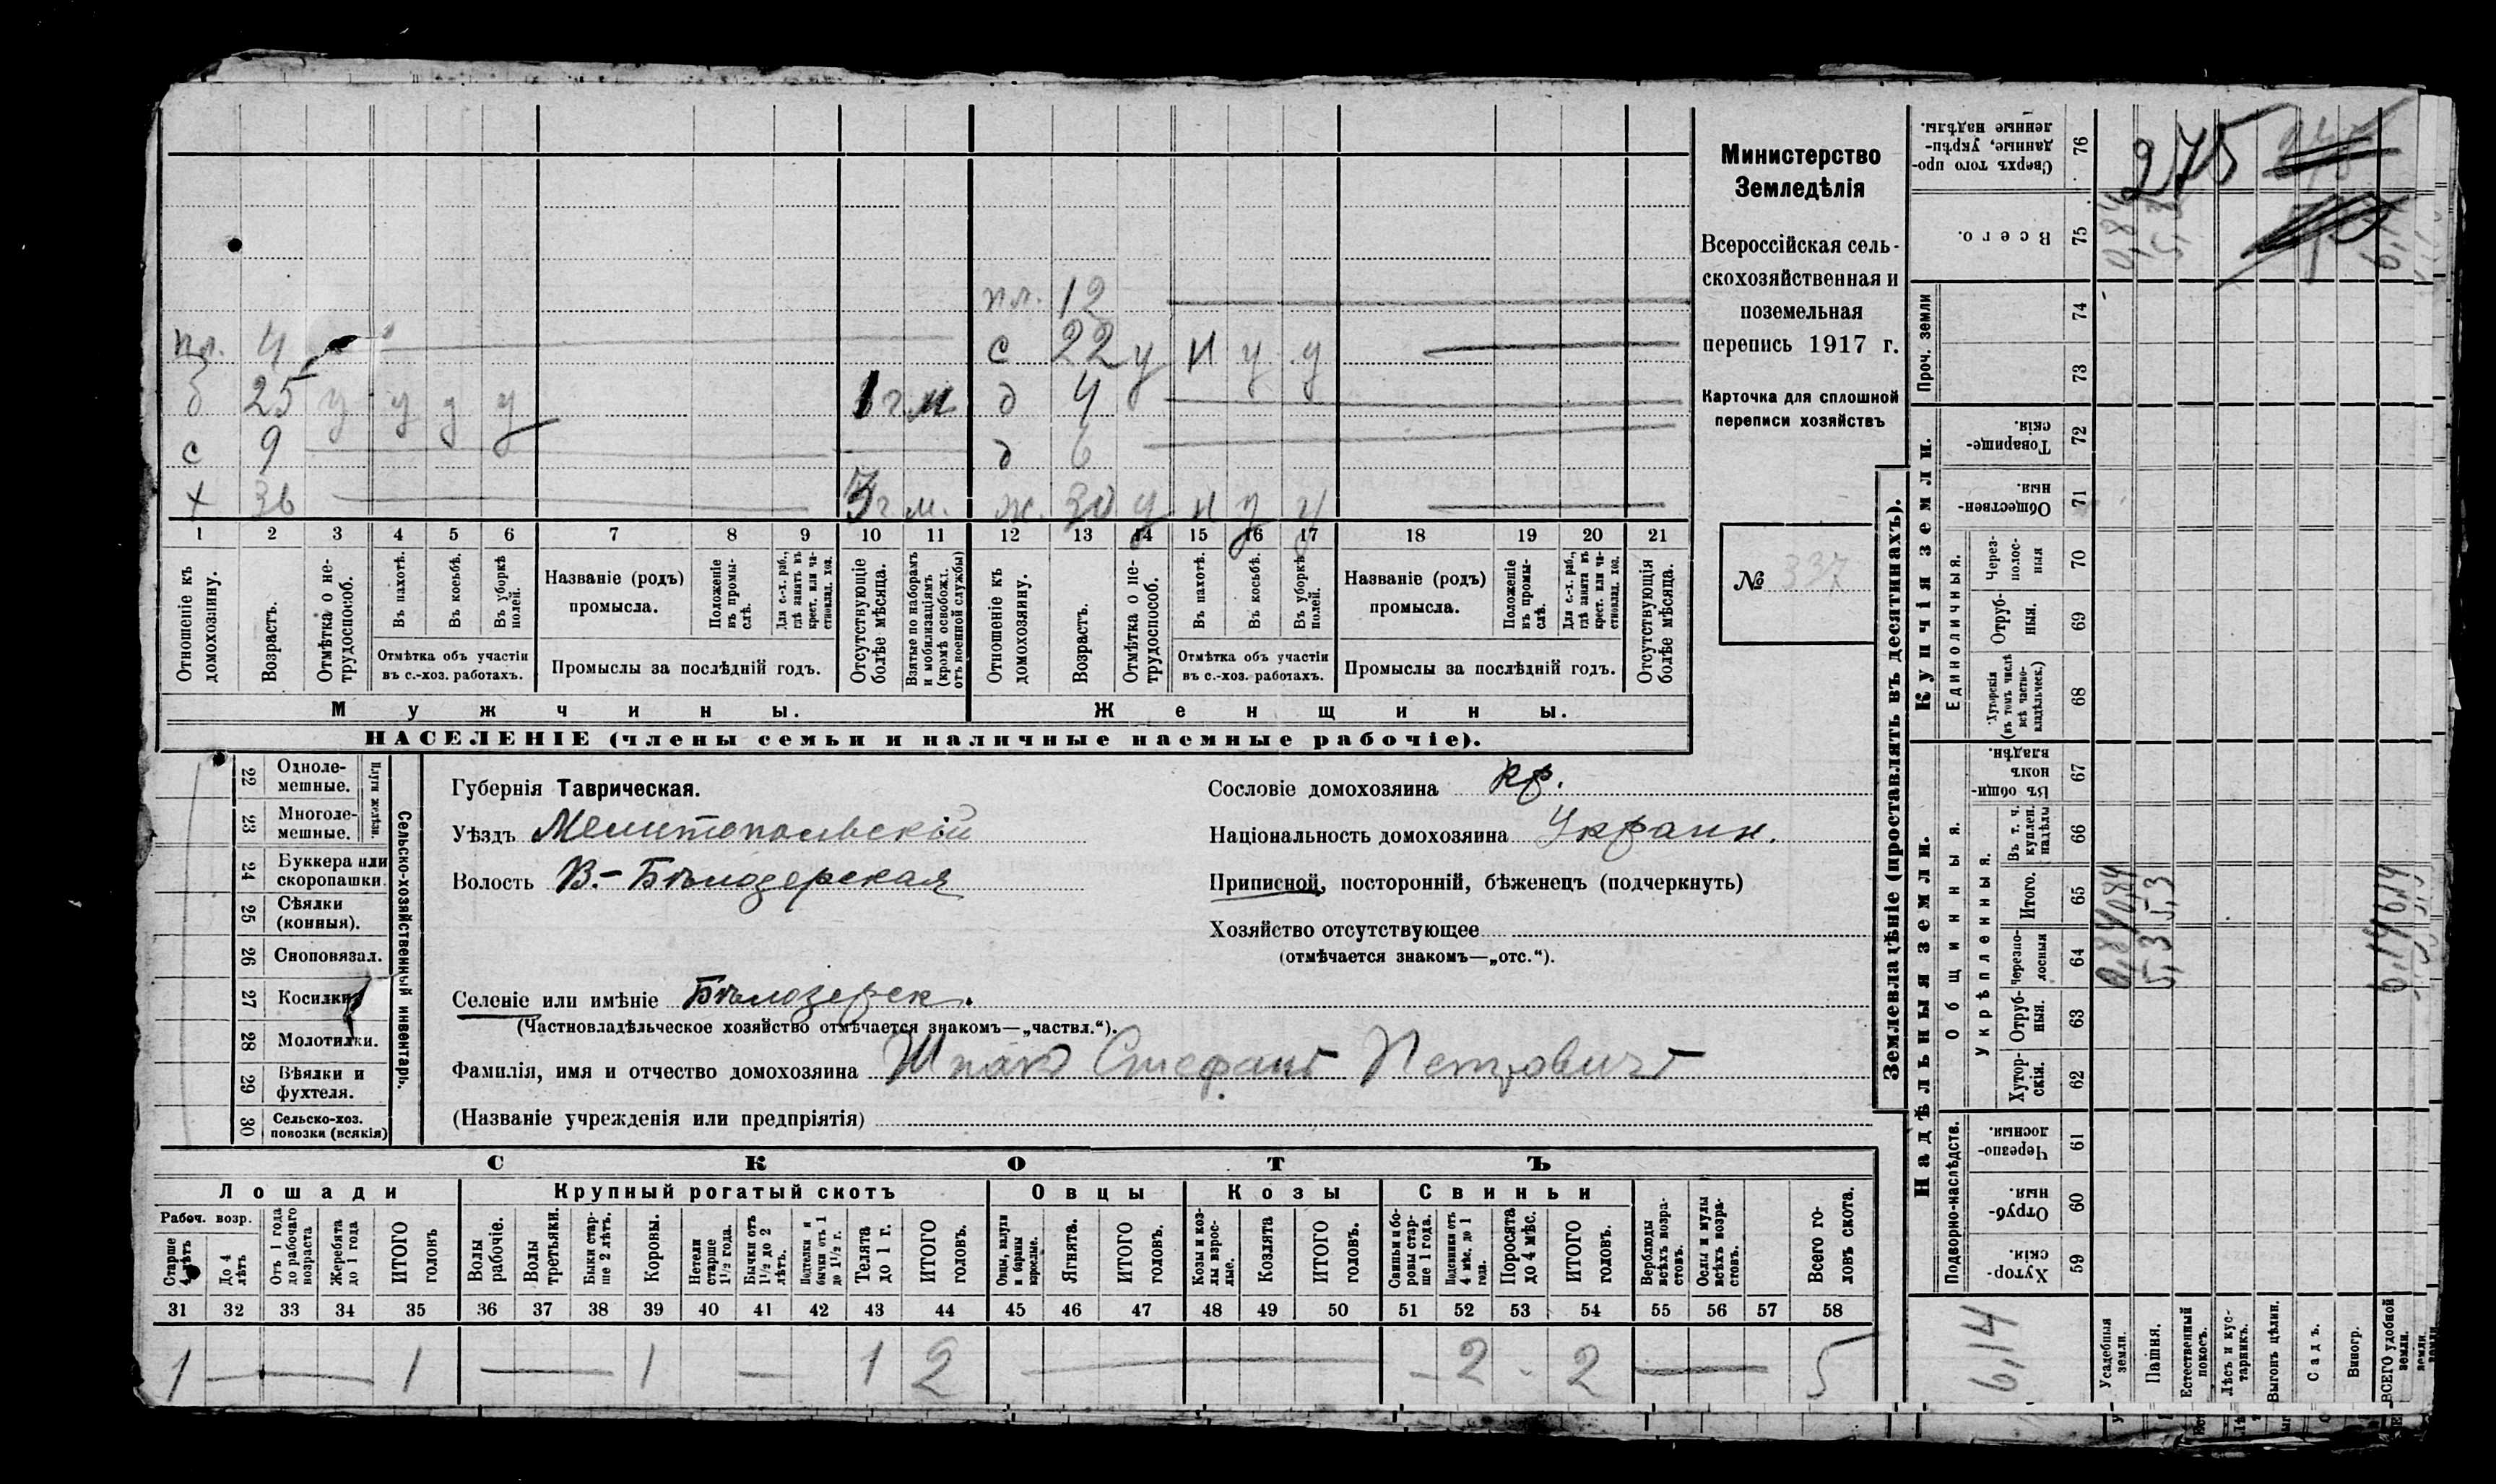 пл. 12
пл. 4
с 22 у н у у
б 25 у у у у 1 г. м д 4
с 9 д 6
х 36 3 г. м. ж. 30 у н у у
1 2 3 4 5 6 7 8 9 10 11 12 13 14 15 16 17 18 19 20 21
Отношеніе къ домохозяину.
Возрастъ.
Отмѣтка о не-
трудоспособ.
Въ пахотѣ.
Въ косьбѣ.
Въ уборкѣ
полей.
Отмѣтка объ участіи
въ с.-хоз. работахъ.
Названіе (родъ)
промысла.
Положеніе
въ промы-
слѣ.
Для с.-х. раб.,
гдѣ занятъ въ
крест. или ча-
стновлад. хоз.
Промыслы за послѣдній годъ.
Отсутствующіе
болѣе мѣсяца.
Взятые по наборамъ
и мобилизаціямъ
(кромѣ освобожд.
отъ военной службы)
Отношеніе къ
домохозяину.
Возрастъ.
Отмѣтка о не-
трудоспособ.
Въ пахотѣ.
Въ косьбѣ.
Въ уборкѣ
полей.
Отмѣтка объ участіи
въ с.-хоз. работахъ.
Названіе (родъ)
промысла.
Положеніе
въ промы-
слѣ.
Для с.-х. раб.,
гдѣ занята въ
крест. или ча-
стновлад. хоз.
Промыслы за послѣдній годъ.
Отсутствующія
болѣе мѣсяца.
Мужчины. Женщины.
НАСЕЛЕНІЕ (члены семьи и наличные наемные рабочіе).
Министерство
Земледѣлія
Всероссійская сель-
скохозяйственная и
поземельная
перепись 1917 г.
Карточка для сплошной
переписи хозяйствъ
№ 337
22 Одноле-
мешные.
23 Многоле-
мешные.
Плуги желѣзн.
24 Буккера или
скоропашки.
25 Сѣялки
(конныя).
26 Сноповязал.
27 Косилки
28 Молотилки.
29 Вѣялки и
фухтеля.
30 Сельско-хоз.
повозки (всякія)
Сельско-хозяйственный инвентарь.
Губернія Таврическая.
Уѣздъ Мелитопольскій
Волость В.-Бѣлозерская
Селеніе или имѣніе Бѣлозерск.
(Частновладѣльческое хозяйство отмѣчается знакомъ—„частвл.“).
Фамилія, имя и отчество домохозяина Шпакъ Стефанъ Петровичъ
(Названіе учрежденія или предпріятія)
Сословіе домохозяина кр.
Національность домохозяина Украин.
Приписной, посторонній, бѣженецъ (подчеркнуть)
Хозяйство отсутствующее
(отмѣчается знакомъ—„отс.“).
СКОТЪ
Лошади Крупный рогатый скотъ Овцы Козы Свиньи
Рабоч. возр.
Старше
4 лѣтъ
До 4
лѣтъ
Отъ 1 года
до рабочаго
возраста
Жеребята
до 1 года
ИТОГО
головъ
Волы
рабочіе.
Волы
третьяки.
Быки стар-
ше 2 лѣтъ.
Коровы.
Нетели
старше
1½ года.
Бычки отъ
1½ до 2
лѣтъ.
Подтелки и
бычки отъ 1
до 1½ г.
Телята
до 1 г.
ИТОГО
головъ.
Овцы, валухи
и бараны
взрослые.
Ягнята.
ИТОГО
головъ.
Козы и коз-
лы взрос-
лые.
Козлята
ИТОГО
головъ.
Свиньи и бо-
ровы стар-
ше 1 года.
Подсвинки отъ
4 мѣс. до 1
года.
Поросята
до 4 мѣс.
ИТОГО
головъ.
Верблюды
всѣхъ возра-
стовъ.
Ослы и мулы
всѣхъ возра-
стовъ.
Всего го-
ловъ скота.
31 32 33 34 35 36 37 38 39 40 41 42 43 44 45 46 47 48 49 50 51 52 53 54 55 56 57 58
1 — 1 — 1 — 1 2 — - 2 - 2 — 5
Землевладѣніе (проставлять въ десятинахъ).
Надѣльныя земли. Купчія земли. Проч. земли
Подворно-наслѣдств.
Общинныя.
Укрѣпленныя.
Единоличныя.
Сверхъ того про-
данные, укрѣп-
ленные надѣлы. 76 275
Всего. 75 0,84 5,3 6,14
74
73
Товарище-
скія. 72
Обществен-
ныя. 71
Через-
полос-
ныя 70
Отруб-
ныя. 69
Хуторскія
(въ томъ числѣ
всѣ частно-
владѣльческ.) 68
Въ общи-
номъ
владѣн. 67
Въ т. ч.
куплен.
надѣлы 66
Итого. 65 0,84 5,3 6,14
Черезпо-
лосныя 64 0,84 5,3 6,14
Отруб-
ныя. 63
Хутор-
скія. 62
Черезпо-
лосныя. 61
Отруб-
ныя. 60
Хутор-
скія. 59
6,14
Усадебныя
земли.
Пашня.
Естественный
покосъ.
Лѣсъ и кус-
тарникъ.
Выгонъ цѣлин.
Садъ.
Виногр.
ВСЕГО удобной
земли.